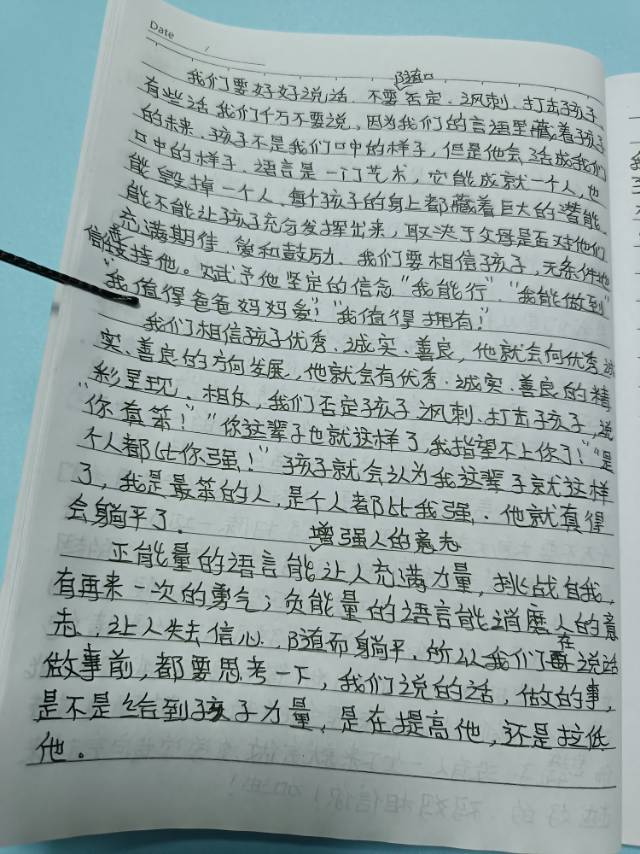 Date
随口
我们要好好说话. 不要否定. 讽刺. 打击孩子
有些话我们千万不要说, 因为我们的言语里藏着孩子
的未来. 孩子不是我们口中的样子, 但是他会活成我们
口中的样子. 语言是一门艺术, 它能成就一个人, 也
能毁掉一个人. 每个孩子的身上都藏着巨大的潜能.
能不能让孩子充分发挥出来, 取决于父母是否对他们
充满期待. 和鼓励. 我们要相信孩子, 无条件地
信任支持他。赋予他坚定的信念"我能行". "我能做到"
"我值得爸爸妈妈爱!" "我值得拥有!"
我们相信孩子优秀. 诚实. 善良, 他就会向优秀. 诚
实. 善良的方向发展, 他就会有优秀. 诚实. 善良的精
彩呈现. 相反, 我们否定孩子. 讽刺. 打击孩子, 说
"你真笨!" "你这辈子也就这样了, 我指望不上你了!" "是
个人都比你强!" 孩子就会认为我这辈子就这样
了, 我是最笨的人, 是个人都比我强. 他就真得
会躺平了.
增强人的意志
正能量的语言能让人充满力量, 挑战自我,
有再来一次的勇气; 负能量的语言能消磨人的意
志. 让人失去信心. 随而躺平. 所以我们在说话
做事前, 都要思考一下, 我们说的话, 做的事,
是不是给到孩子力量, 是在提高他, 还是拉低
他。